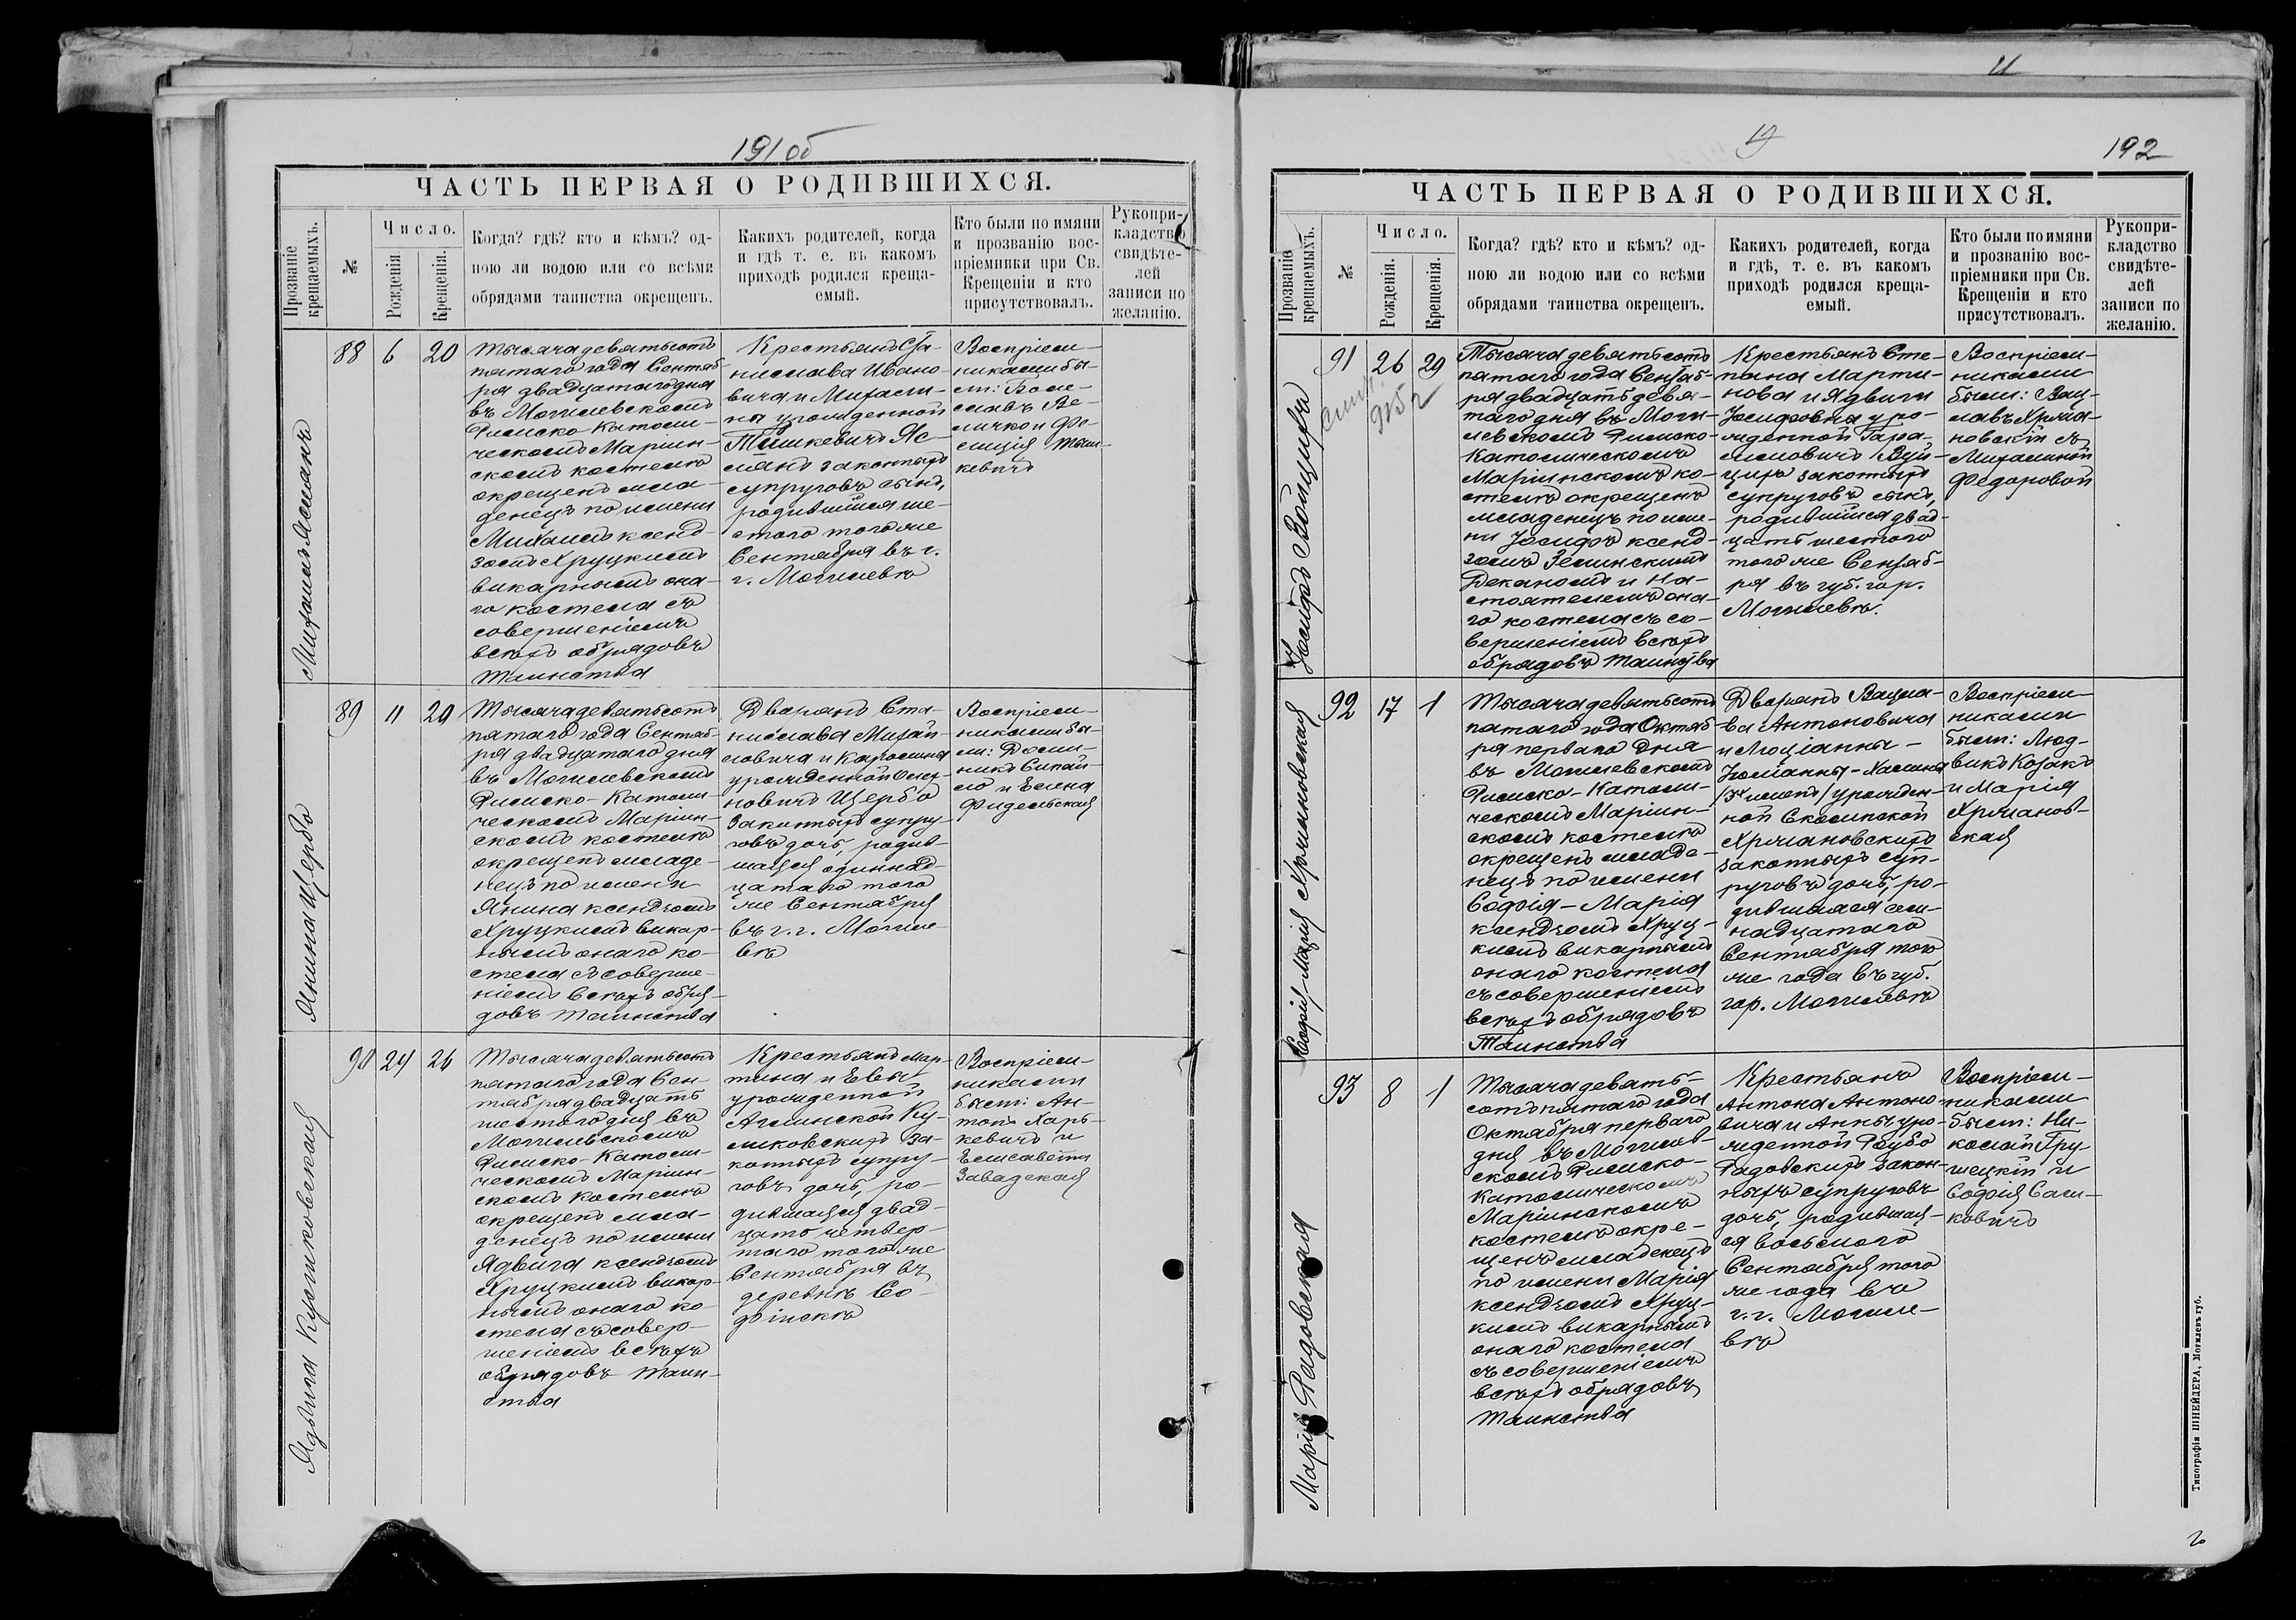 191об
ЧАСТЬ ПЕРВАЯ О РОДИВШИХСЯ.
Прозваніе крещаемыхъ.
№
Число.
Рожденія.
Крещенія.
Когда? гдѣ? кто и кѣмъ? од-
ною ли водою или со всѣми
обрядами таинства окрещенъ.
Какихъ родителей, когда
и гдѣ т. е. въ какомъ
приходѣ родился креща-
емый.
Кто были по имяни
и прозванію вос-
пріемники при Св.
Крещеніи и кто
присутствовалъ.
Рукопри-
кладство
свидѣте-
лей
записи по
желанію.
Михаилъ
88 6 20
Тысяча девятьсотъ
пятаго года Сентяб-
ря двадцатаго дня
въ Могилевскомъ
Римско-Католи-
ческомъ Маріин-
скомъ костелѣ
окрещенъ мла-
денецъ по имени
Михаилъ ксенд-
зомъ Хруцкимъ
викарнымъ она-
го костела съ
совершеніемъ
всѣхъ обрядовъ
таинства
Крестьянъ Ста-
нислава Ивано-
вича и Михали-
ны урожденной
Тышкевичъ Яс-
законныхъ
супруговъ сынъ,
родившійся ше-
стого того же
Сентября въ г.
г. Могилевѣ
Воспріем-
никами бы-
ли: Боле-
славъ Ве-
личко и Фе-
лиція Тыш-
кевичъ
Янина Щербо
89 11 20
Тысяча девятьсотъ
пятаго года Сентяб-
ря двадцатаго дня
въ Могилевскомъ
Римско-Католи-
ческомъ Маріин-
скомъ костелѣ
окрещенъ младе-
нецъ по имени
Янина ксендзомъ
Хруцкимъ викар-
нымъ онаго ко-
стела съ соверше-
ніемъ всѣхъ обря-
довъ таинства
Дворянъ Ста-
нислава Михай-
ловича и Каролины
урожденной
новичъ Щербо
законныхъ супру-
говъ дочь, родив-
шаяся одиннад-
цатаго того
же Сентября
въ г. г. Могиле-
вѣ
Воспріем-
никами бы-
ли: Доми-
никъ
и Елена
Фидельская
Ядвига Куликовская
90 24 26
Тысяча девятьсотъ
пятаго года Сен-
тября двадцать
шестого дня въ
Могилевскомъ
Римско-Католи-
ческомъ Маріин-
скомъ костелѣ
окрещенъ мла-
денецъ по имени
Ядвига ксендзомъ
Хруцкимъ викар-
нымъ онаго ко-
стела съ совер-
шеніемъ всѣхъ
обрядовъ таин-
ства
Крестьянъ Мар-
тина и Евы
урожденной
Аглинской Ку-
ликовскихъ за-
конныхъ супру-
говъ дочь, ро-
дившаяся двад-
цать четвер-
таго того же
Сентября въ
деревнѣ Со-
фіискѣ
Воспріем-
никами
были: Ан-
тонъ Харь-
кевичъ и
Елисавета
Завадская
192
ЧАСТЬ ПЕРВАЯ О РОДИВШИХСЯ.
Прозваніе крещаемыхъ.
№
Число.
Рожденія.
Крещенія.
Когда? гдѣ? кто и кѣмъ? од-
ною ли водою или со всѣми
обрядами таинства окрещенъ.
Какихъ родителей, когда
и гдѣ, т. е. въ какомъ
приходѣ родился креща-
емый.
Кто были по имяни
и прозванію вос-
пріемники при Св.
Крещеніи и кто
присутствовалъ.
Рукопри-
кладство
свидѣте-
лей
записи по
желанію.
Іосифъ
91 26 29
Тысяча девятьсотъ
пятаго года Сентяб-
ря двадцать девя-
таго дня въ Моги-
левскомъ Римско-
Католическомъ
Маріинскомъ ко-
стелѣ окрещенъ
младенецъ по име-
ни Іосифъ ксенд-
зомъ Зелинскимъ
Деканомъ и на-
стоятелемъ она-
го костела съ со-
вершеніемъ всѣхъ
обрядовъ таинства
Крестьянъ Сте-
пана Марти-
нова и Ядвиги
Іосифовны уро-
жденной Гара-
симовичъ
законныхъ
супруговъ сынъ,
родившійся двад-
цать шестого
того же Сентяб-
ря въ губ. гор.
Могилевѣ.
Воспріем-
никами
были: Вац-
лавъ Хржа-
новскій съ
Михалиной
Федоровой
Софія-Марія Хржановская
92 17 1
Тысяча девятьсотъ
пятаго года Октяб-
ря перваго дня
въ Могилевскомъ
Римско-Католи-
ческомъ Маріин-
скомъ костелѣ
окрещенъ младе-
нецъ по имени
Софія-Марія
ксендзомъ Хруц-
кимъ викарнымъ
онаго костела
съ совершеніемъ
всѣхъ обрядовъ
Таинства
Дворянъ Вацла-
ва Антоновича
и Люціанны-
Юліанны-
/3хъ именъ/ урожден-
ной
Хржановскихъ
законныхъ суп-
руговъ дочь, ро-
дившаяся сем-
надцатаго
Сентября того
же года въ губ.
гор. Могилевѣ
Воспріем-
никами
были: Люд-
викъ Козакъ
и Марія
Хржанов-
ская
Марія Радовская
93 8 1
Тысяча девять-
сотъ пятаго года
Октября перваго
дня въ Могилев-
скомъ Римско-
Католическомъ
Маріинскомъ
костелѣ окре-
щенъ младенецъ
по имени Марія
ксендзомъ Хруц-
кимъ викарнымъ
онаго костела
съ совершеніемъ
всѣхъ обрядовъ
таинства
Крестьянъ
Антона Антоно-
вича и Анны уро-
жденной
Радовскихъ закон-
ныхъ супруговъ
дочь, родившая-
ся восьмого
Сентября того
же года въ
г. г. Могиле-
вѣ
Воспріем-
никами
были: Ни-
колай Гру-
шецкій и
Софія
ковичъ
Типографія ШНЕЙДЕРА, Могилевъ губ.